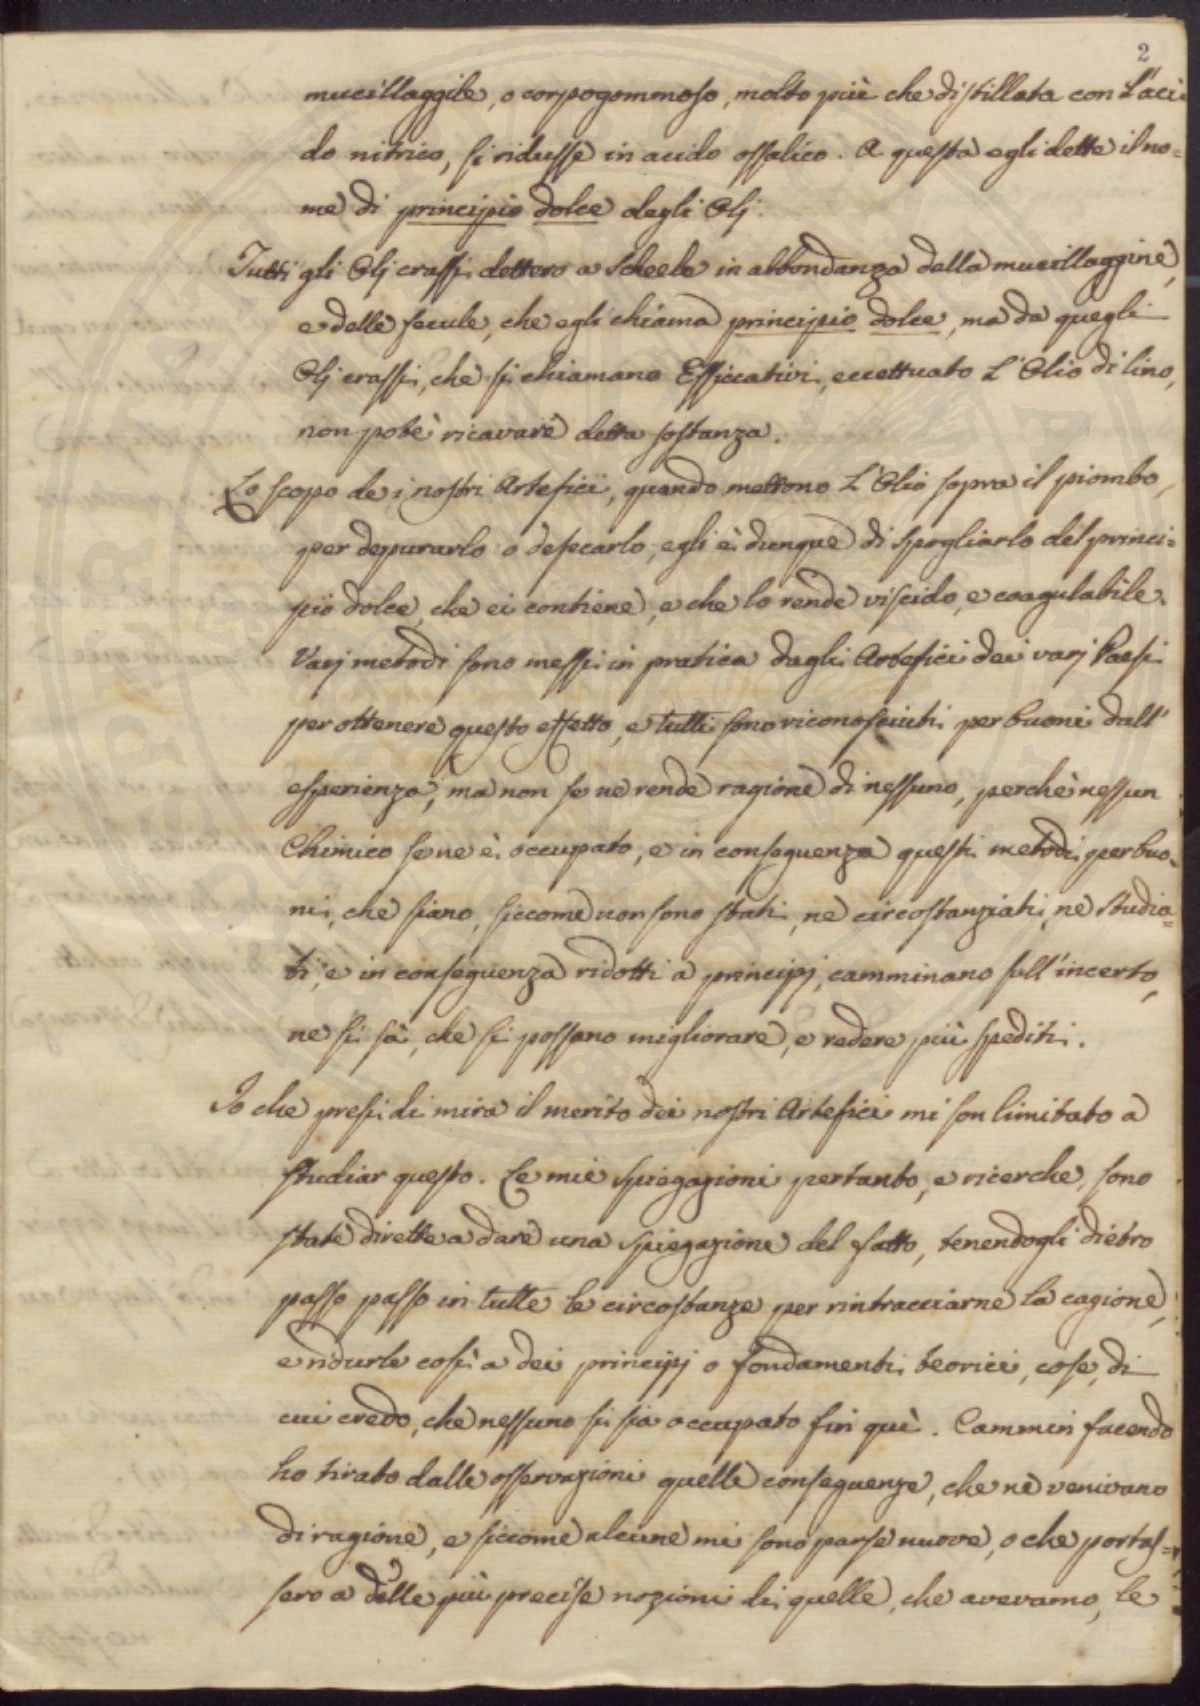 2
mucillaggile, o corpogommoso, molto più che distillata con L'aci-
do nitrico, si ridusse in acido ossalico. A questa egli dette il no=
me di principio dolce degli Olj.
Tutti gli Olj crassi dettero a Scheele in abbondanza della mucillaggine,
e delle fecule, che egli chiama principio dolce, ma da quegli
Olj crassi, che si chiamano Essiccativi, eccettuato L'Olio di lino,
non potè ricavare detta sostanza.
Lo scopo de i nostri Artefici, quando mettono L'Olio sopra il piombo,
per depurarlo o defecarlo, egli è dunque di spogliarlo del princi=
pio dolce, che ei contiene, e che lo rende viscido, e coagulabile.
Varj metodi sono messi in pratica dagli Artefici dei varj Paesi
per ottenere questo effetto, e tutti sono riconosciuti per buoni dall'
esperienza, ma non se ne rende ragione di nessuno, perchè nessun
Chimico se ne è occupato, e in conseguenza questi metodi per buo=
ni, che siano, siccome non sono stati, ne circostanziati, ne studia=
ti, e in conseguenza ridotti a principj, camminano sull'incerto,
ne si sà, che si possano migliorare, e redere più spediti.
Io che presi di mira il merito dei nostri Artefici mi son limitato a
studiar questo. Le mie spiegazioni pertanto, e ricerche, sono
state dirette a dare una spiegazione del fatto, tenendogli dietro
passo passo in tutte le circostanze per rintracciarne la cagione,
e ridurle così a dei principj o fondamenti teorici, cose, di
cui credo, che nessuno si sia occupato fin quì. Cammin facendo
ho tirato dalle osservazioni quelle conseguenze, che ne venivano
di ragione, e siccome alcune mi sono parse nuove, o che portas=
sero a delle più precise nozioni di quelle, che avevamo, le